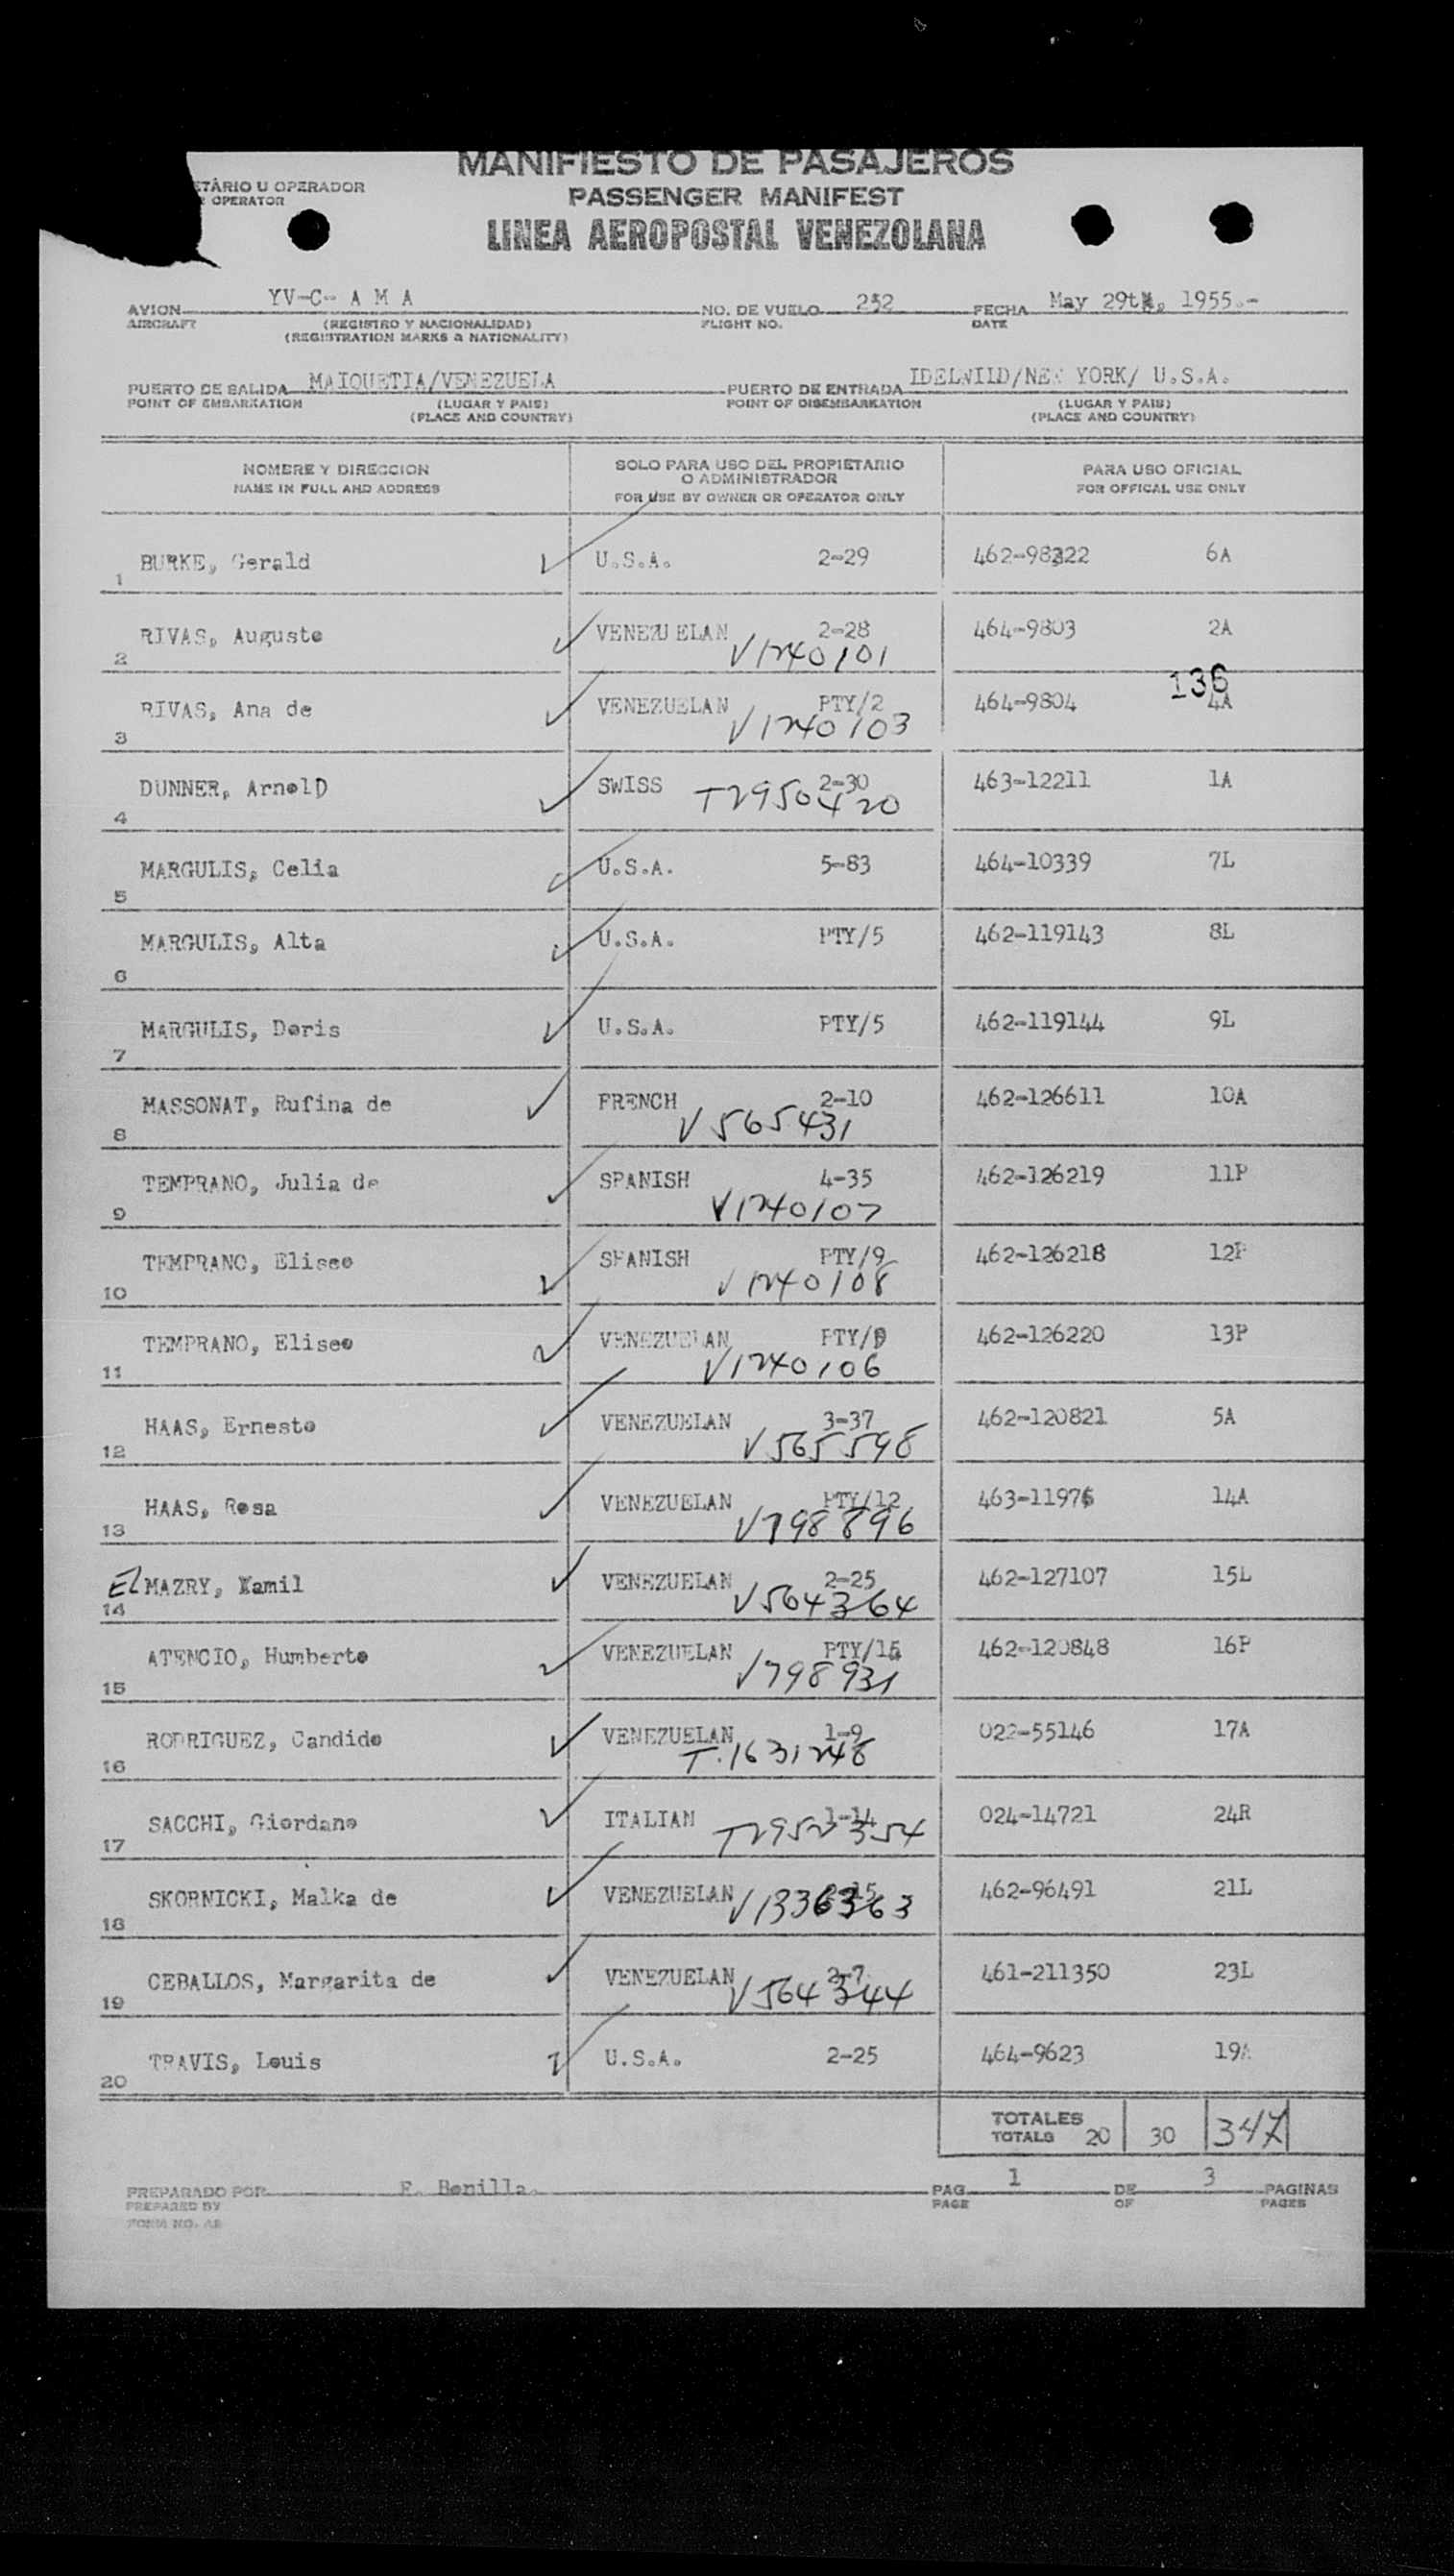 MANIFIESTO DE PASAJEROS
ETARIO U OPERADOR
OPERATOR
PASSENGER MANIFEST
LINEA AEROPOSTAL VENEZOLANA
AVION YV-C- A M A NO. DE VUELO 252 FECHA May 29th, 1955.-
AIRCRAFT (REGISTRO Y NACIONALIDAD) FLIGHT NO. DATE
(REGISTRATION MARKS & NATIONALITY)
PUERTO DE SALIDA MAIQUETIA/VENEZUELA PUERTO DE ENTRADA IDELWILD/NEW YORK/ U.S.A.
POINT OF EMBARKATION (LUGAR Y PAIS) POINT OF DISEMBARKATION (LUGAR Y PAIS)
(PLACE AND COUNTRY) (PLACE AND COUNTRY)
NOMBRE Y DIRECCION SOLO PARA USO DEL PROPIETARIO O ADMINISTRADOR PARA USO OFICIAL
NAME IN FULL AND ADDRESS FOR USE BY OWNER OR OPERATOR ONLY FOR OFFICAL USE ONLY
1 BURKE, Gerald U.S.A. 2-29 462-98322 6A
2 RIVAS, Augusto VENEZUELAN 2-28 464-9803 2A
V1240101
136
3 RIVAS, Ana de VENEZUELAN PTY/2 464-9804 4A
V1240103
4 DUNNER, ArnolD SWISS 2-30 463-12211 1A
T2950420
5 MARGULIS, Celia U.S.A. 5-83 464-10339 7L
6 MARGULIS, Alta U.S.A. PTY/5 462-119143 8L
7 MARGULIS, Doris U.S.A. PTY/5 462-119144 9L
8 MASSONAT, Rufina de FRENCH 2-10 462-126611 10A
V565431
9 TEMPRANO, Julia de SPANISH 4-35 462-126219 11P
V1240107
10 TEMPRANO, Eliseo SPANISH PTY/9 462-126218 12P
V1240108
11 TEMPRANO, Eliseo VENEZUELAN PTY/9 462-126220 13P
V1240106
12 HAAS, Ernesto VENEZUELAN 3-37 462-120821 5A
V565598
13 HAAS, Rosa VENEZUELAN PTY/12 463-11976 14A
V798896
14 EL MAZRY, Kamil VENEZUELAN 2-25 462-127107 15L
V564364
15 ATENCIO, Humberto VENEZUELAN PTY/15 462-120848 16P
V798931
16 RODRIGUEZ, Candido VENEZUELAN 1-9 022-55146 17A
T.1631248
17 SACCHI, Giordano ITALIAN 1-14 024-14721 24R
T2952354
18 SKORNICKI, Malka de VENEZUELAN 462-96491 21L
V1336363
19 CEBALLOS, Margarita de VENEZUELAN 2-7 461-211350 23L
V564344
20 TRAVIS, Louis U.S.A. 2-25 464-9623 19A
TOTALES
TOTALS 20 30 347
PREPARADO POR F. Bonilla. PAG. 1 DE 3 PAGINAS
PREPARED BY PAGE OF PAGES
FORM NO.